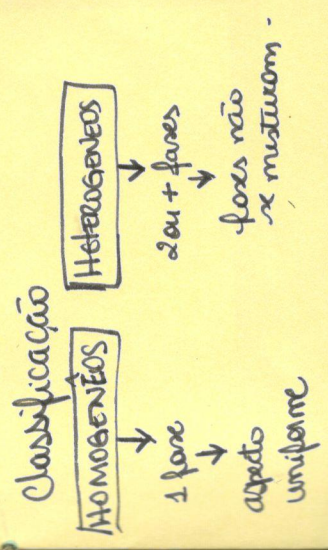 Classificação
HOMOGENÊOS
↓
1 fase
↓
aspecto
uniforme
HETEROGENEOS
↓
2 ou + fases
↓
fases não
se misturam.